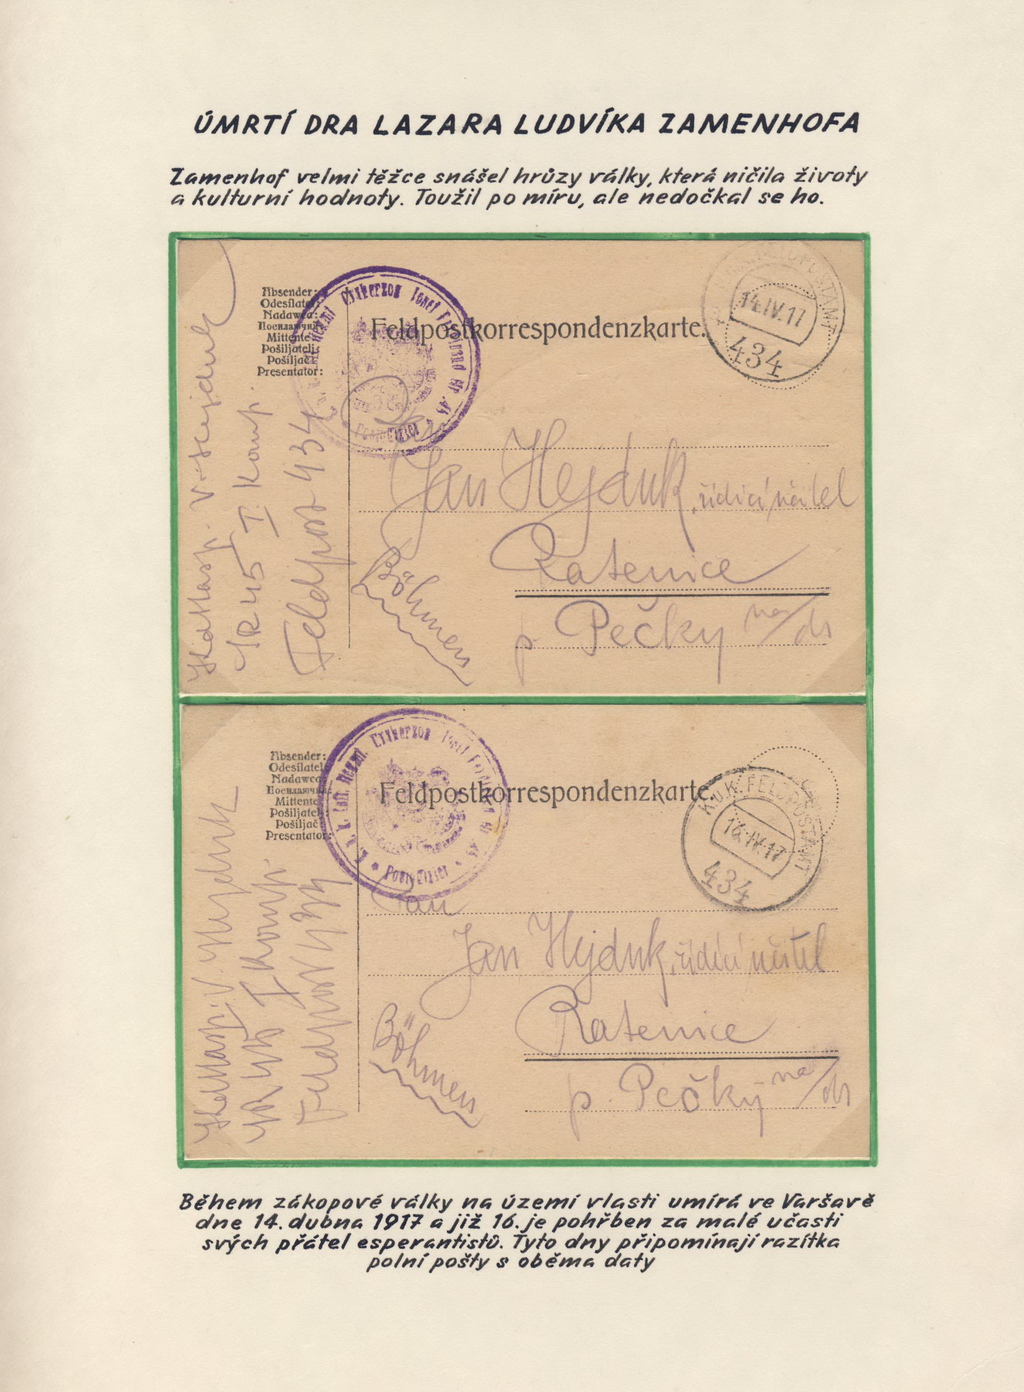 ÚMRTÍ DRA LAZARA LUDVÍKA ZAMENHOFA
Zamenhof velmi těžce snášel hrůzy války, která ničila životy
a kulturní hodnoty. Toužil po míru, ale nedočkal se ho.
Absender:
Odesílatel
Nadawca:
Mittente
Pošiljatelj:
Pošiljač
Presentator:
V. Hejduk
IR 45 I Komp.
Feldpost 434
Erzherzog Josef Ferdinand Nr. 45
Feldpostkorrespondenzkarte.
FELDPOSTAMT
14.IV.17
434
Jan Hejduk, řídící učitel
Ratenice
p. Pečky na/dr
Böhmen
Absender:
Odesílatel
Nadawca
Mittente
Pošiljatelj
Pošiljač
Presentator
V. Hejduk
IR 45 I Komp.
Feldpost 434
K. u. k. Inft. Regmt. Erzherzog Josef Ferdinand Nr. 45
Feldpostkorrespondenzkarte.
K.u.K. FELDPOSTAMT
16.IV.17
434
Jan
Jan Hejduk, řídící učitel
Ratenice
p. Pečky na/dr
Böhmen
Během zákopové války na území vlasti umírá ve Varšavě
dne 14. dubna 1917 a již 16. je pohřben za malé účasti
svých přátel esperantistů. Tyto dny připomínají razítka
polní pošty s oběma daty